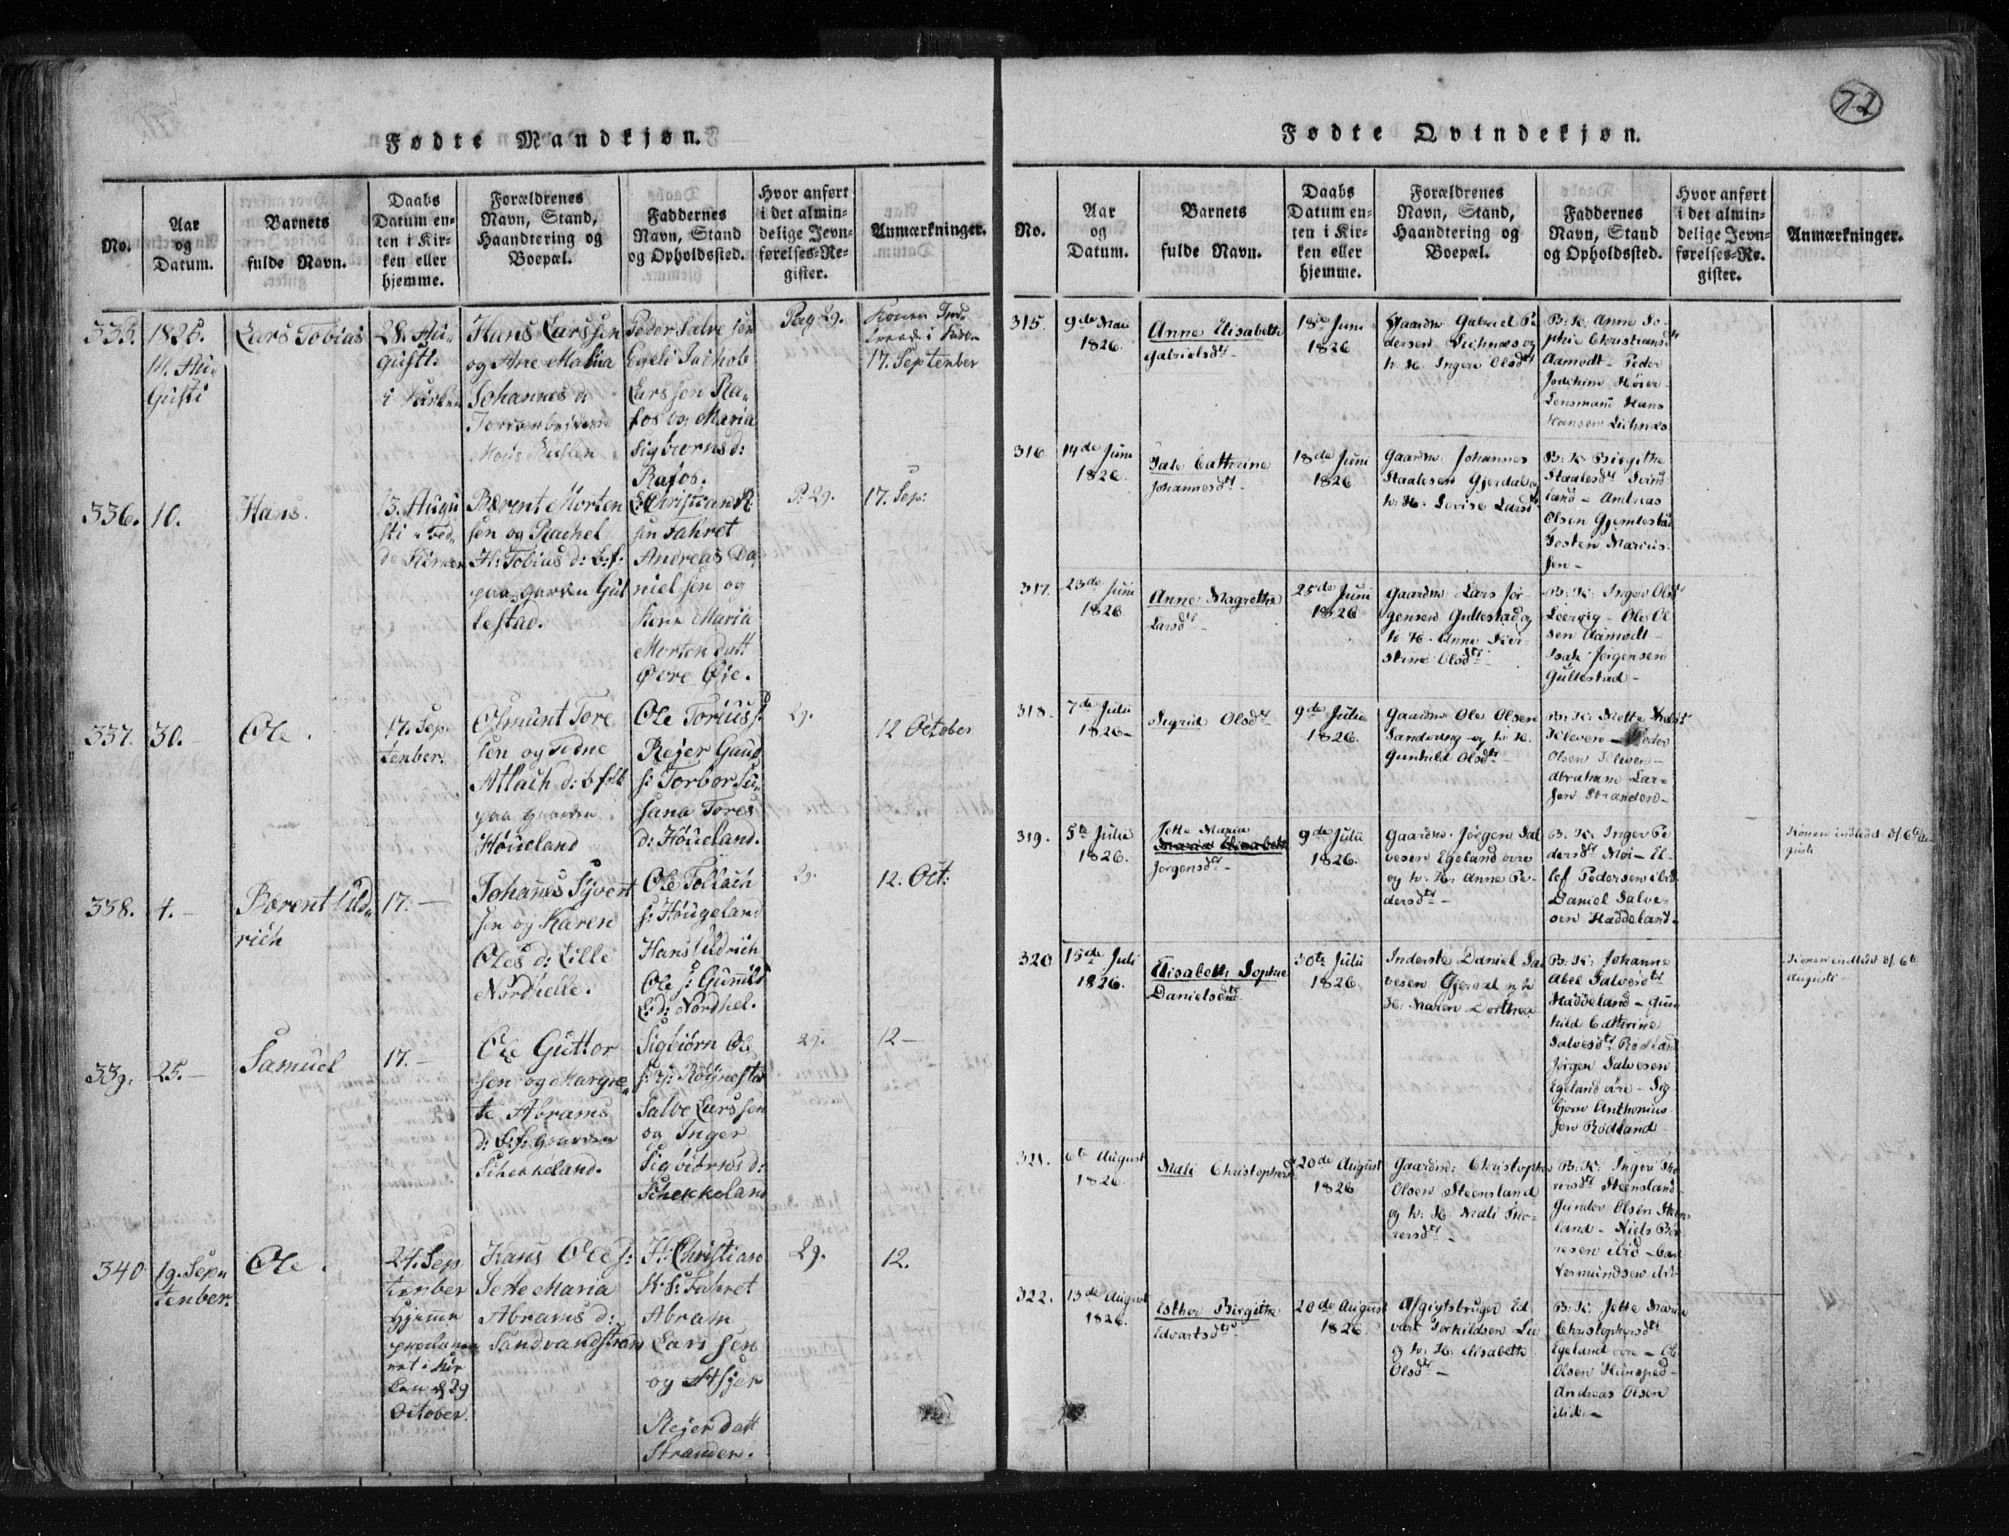 72
Fødte Mandkjøn.
No.
Aar
og
Datum.
Barnets
fulde Navn.
Daabs
Datum en-
ten i Kir-
ken eller
hjemme.
Forældrenes
Navn, Stand,
Haandtering og
Boepæl.
Faddernes
Navn, Stand
og Opholdssted.
Hvor anført
i det almin-
delige Jevn-
førelses-Re-
gister.
Anmærkninger.
335.
1825.
14. Au-
gusti
Lars Tobias
28. Au-
gusti
i Kirken
Hans Larssen
og Ane Malua
Johannes d:
Peder Salvesen
Egeli Jachob
Larssen Ra-
fos og Maria
Sigbiørns d:
Rafos.
Pag 29.
17. September
336.
10.
Hans.
13. Augu
sti
Bærent Morten
sen og Rachel
H: Tobias d: b: f:
paa gaarden Gul
lestad.
Christian K
sen Fahret
Andreas Da
nielsen og
Maria
Morten datt
Øvre Øie.
P. 29.
17. Sep:
337.
30.
Ole.
17. Sep-
tenber.
Osmunt Tore
sen og Torne
Atlach d: b folk
paa gaarden
Høueland
Ole Torius s:
Rejer Gaup
s: Torbor Su-
sana Tores
d: Høueland.
29.
12 October
338.
4. —
Bærent Uld-
rich
17. —
Johannes Syvert
sen og Karen
Oles d: Lille
Nordhelle.
Ole Tollach
s: Høugeland
Hans Uldrich
Ole s: Gunnild
L: d: Nordhel.
29.
12. Oct:
339.
25. —
Samuel
17. —
Ole Guttor
sen og Margre-
te Abrams
d: b: f: gaarden
Schekkeland.
Sigbiørn Ole
s: Røinestad
Salve Larssen
og Inger
Sigbiørns d:
Schekkeland
29.
12 —
340
19. Sep-
tenber.
Ole.
24. Sep
tenber
hjemme
i Kir
ken d 29
October.
Hans Ole s:
Jette Maria
Abrams d:
Sandvandstran
H: Christian
K: s: Fahret
Abram
Larssen
og Asjer
Rejer datt
Stranden.
29.
12.
Fødte Qvindekjøn.
No.
Aar
og
Datum.
Barnets
fulde Navn.
Daabs
Datum en-
ten i Kir-
ken eller
hjemme.
Forældrenes
Navn, Stand,
Haandtering og
Boepæl.
Faddernes
Navn, Stand
og Opholdssted.
Hvor anført
i det almin-
delige Jevn-
førelses-Re-
gister.
Anmærkninger.
315.
9de Mai
1826.
Anne Elisabeth
Gabrielsdtr —
18de Juni
1826
Gaardm Gabriel Pe
dersen Lichnæs og
h. K. Inger Olsdtr
B: K: Anne So-
phie Christiansdtr
Aamodt — Peder
Jochim Høier
Lensmand Hans
Hansen Lichnæs
316
14de Juni
1826
Cathrine
Johannesdtr.
18de Juni
1826
Gaardm. Johannes
Staalesen Gjerdal og
h. K. Lovise Larsdtr
B. K. Birgithe
Staalesdtr Svind
land — Andreas
Olsen Gjemlestad
Josten Marcus-
sen —
317.
23de Juni
1826
Anne Magrethe
Larsdtr
25de Juni
1826
Gaardm Lars Jør-
gensen Gullestad og
h. K. Anne Kir-
stine Olsdtr —
B. K. Inger Olsdtr
Leervig — Ole Ol
sen Aamodt —
Isak Jørgensen
Gullestad —
318.
7de Julii
1826 —
Sigrid Olsdtr —
9de Julii
1826.
Gaardm Ole Olsen
Sandvæg og h. K.
Gunhild Olsdtr —
B. K. Mette
Kleven — Peder
Olsen Kleven —
Abraham Lar-
sen Stranden —
319.
5te Julii
1826.
Jette Maria
Jørgensdtr —
9de Julii
1826.
Gaardm. Jørgen Sal
vesen Egeland øvre
og h. K. Anne Pe-
dersdtr —
B. K. Inger Pe
dersdtr Moi — El-
lef Pedersen ibid
Daniel Salve-
sen Haddeland —
Konen indledt d. 6te Au
gusti
320
15de Juli
1826.
Elisabeth Sophie
Danielsdtr
30te Julii
1826.
Inderste Daniel Sal
vesen Gjerdal og h
K: Maren Dorthea
B. K. Johanne
Abel Salvesdtr
Haddeland — Gun
hild Cathrine
Salvesdtr Rødland
Jørgen Salvesen
Egeland øvre — Sig
bjørn Anthonius
sen Rødland
Konen indledt d. 6te
Augusti —
321.
6te August
1826
Mali Christophersdtr
20de August
1826
Gaardm: Christopher
Olsen Steensland
og h. K. Mali Tho-
resdtr
B. K. Inger Tho
resdtr Steensland
Gunder Olsen Steens
land — Niels
ibid —
ibid
322.
13de August
1826.
Esther Birgithe
Edvartsdtr.
20de August
1826
Afgigtsbruger Ed
vart Torkildsen Liv
og h. K. Elisabeth
Olsdtr —
B. K. Jette Maria
Christophersdtr
Egeland øvre — Ole
Olsen
Andreas Olsen
ibid. —